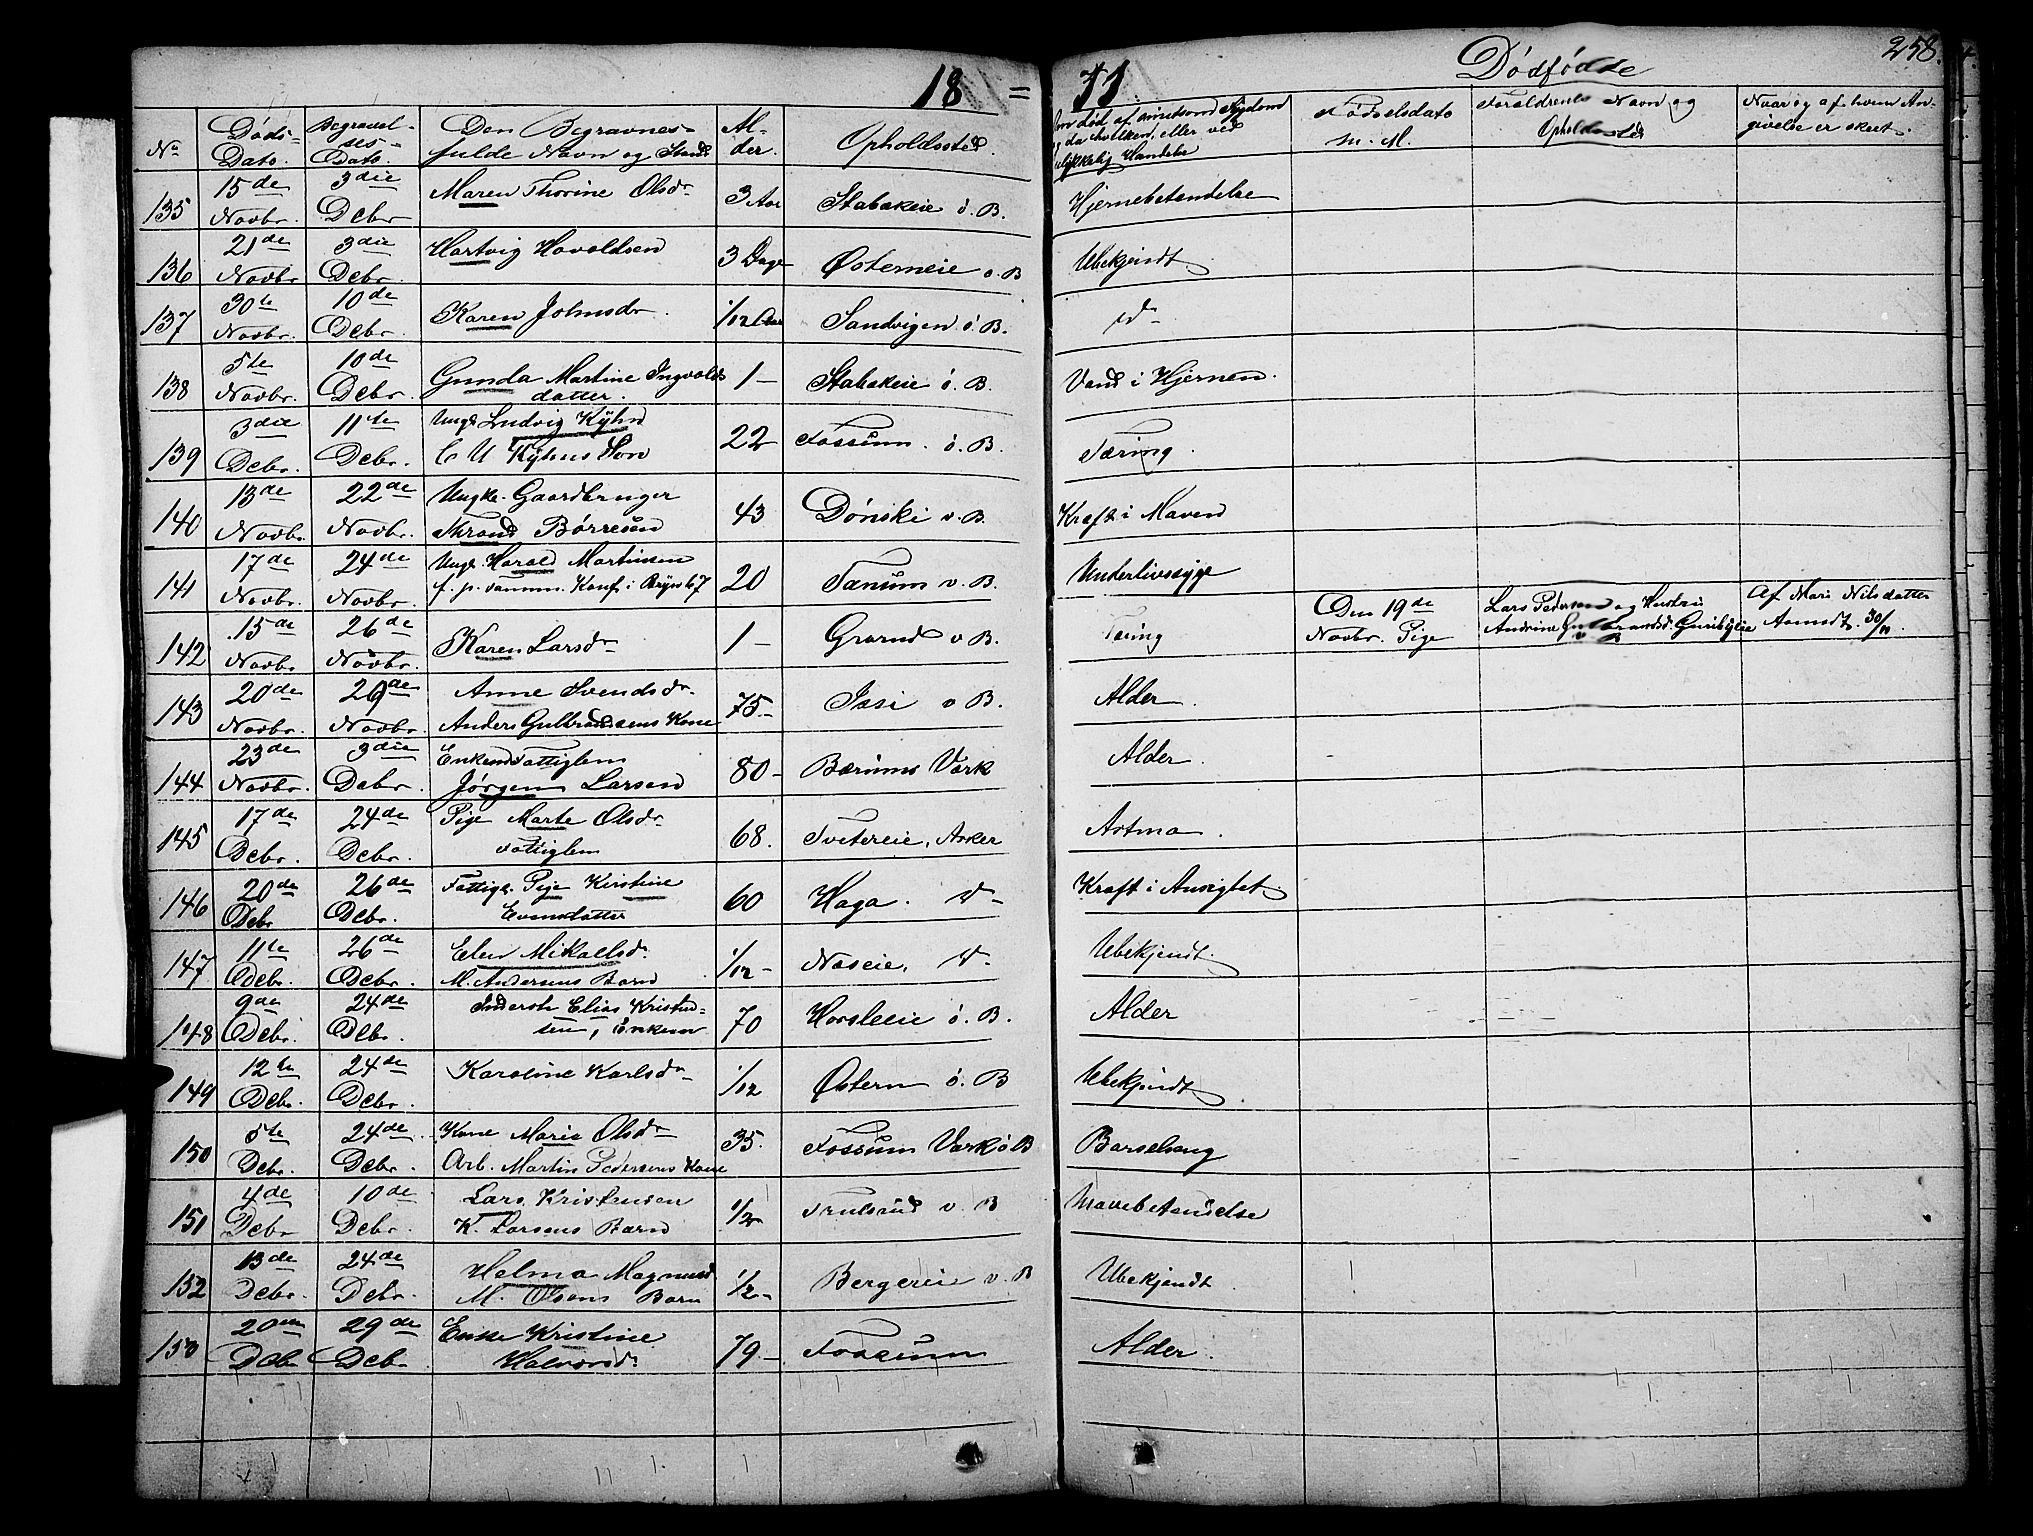 18 = 71
Dödfödte
258.
No
Döds-
Dato.
Begravel-
ses-
Dato.
Den Begravnes
fulde Navn og Stand
Al-
der.
Opholdssted.
Om död af smitsom Sygdom
og da hvilken, eller ved
ulykkelig Hændelse
Födselsdato
m. M.
Forældrenes Navn og
Opholdssted
Naar og af hvem An-
givelse er skeet.
135 15de Novbr. 3die Debr Maren Thorine Olsdr 3 Aar Stabækeie ö. B. Hjernebetændelse
136 21de Novbr 3die Debr. Hartvig Havoldsen 3 Dage Østerneie ö. B Ubekjendt
137 30te Novbr. 10de Debr. Karen Johnsdr. 1/12 Aar Sandvigen ö. B. do
138 5te Novbr. 10de Debr. Gunda Martine Ingvolds
datter. 1 – Stabækeie ö. B. Vand i Hjernen.
139 3die Debr. 11te Debr. Ungk. Ludvig Kÿhn
C U Kÿhns Sön 22 Fossum. ö. B. Tæring.
140 13de Novbr. 22de Novbr. Ungk. Gaardbruger
Thrond Börresen 43 Dönski v. B. Kræft i Maven
141 17de Novbr. 24de Novbr. Ungk. Harald Martinsen
20 Tanum v. B. Underlivssyge
142 15de Novbr 26de Novbr. Karen Larsdr 1 – Grarud v B. Tæring
Den 19de
Novbr. Pige
Lars Pedersen og Hustru
Andrine v B
Af Mari Nilsdatter
30/11.
143 20de Novbr. 29de Novbr. Anne Svendsdr.
Anders Gulbrandsens Kone 75– Jssi v B. Alder.
144 23de Novbr. 3die Debr. Enkem Fattiglem
Jörgen Larsen 80– Bærums Værk Alder.
145 17de Debr. 24de Debr. Pige Marte Olsdr
Fattiglem 68. Tveitereie, Asker Astma.
146 20de Debr 26de Debr. Fattigl. Pige Kirstine
Evensdatter 60 Haga. do Kræft i Ansigtet
147 11te Debr. 26de Debr. Elen Mikaelsd.
M. Andersens Barn 1/12– Næseie, do Ubekjendt.
148 9de Debr. 24de Debr. Inderste Elias Kristen-
sen, Enkem 70 Horsleeie ö. B. Alder
149 12te Debr. 24de Debr. Karoline Karlsdr 1/12 Østern ö. B Ubekjendt.
150 5te Debr. 24de Debr. Kone Marie Olsdr
Arb. Martin Pedersens Kone 35. Fossum Værk ö B Barselseng
151 4de Debr 10de Debr. Lars Kristensen
K. Larsens Barn 1/2 Trulsrud v. B Mavebetændelse
152 13de Debr. 24de Debr. Helma Magnusd.
M. Olsens Barn 1/2– Bergereie v. B Ubekjendt.
153 20de Debr 29de Debr. Enke Kristine
Halvorsd. 79.– Fossum Alder.